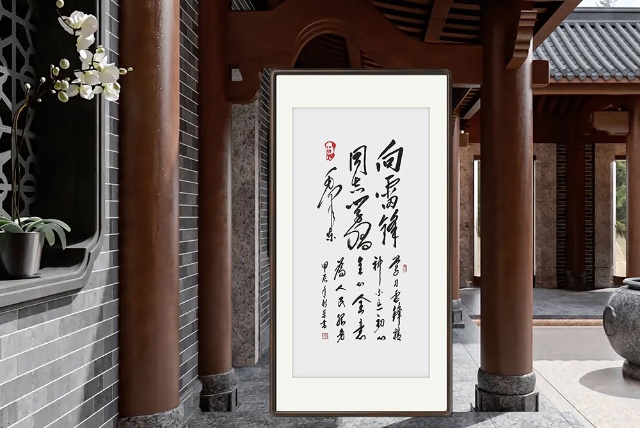 向雷锋
同志学習
毛泽东
学习雷锋精
神不忘初心
全心全意
为人民服务
甲辰年